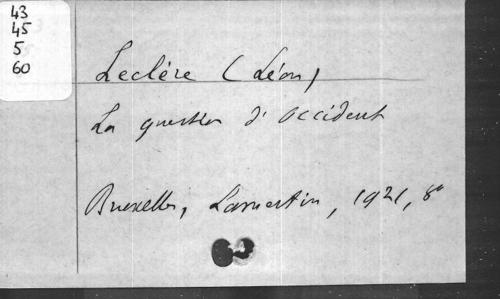 43
45
5
60
Leclère (Léon)
La question d'Occident
Bruxelles, Lamertin, 1921, 8°